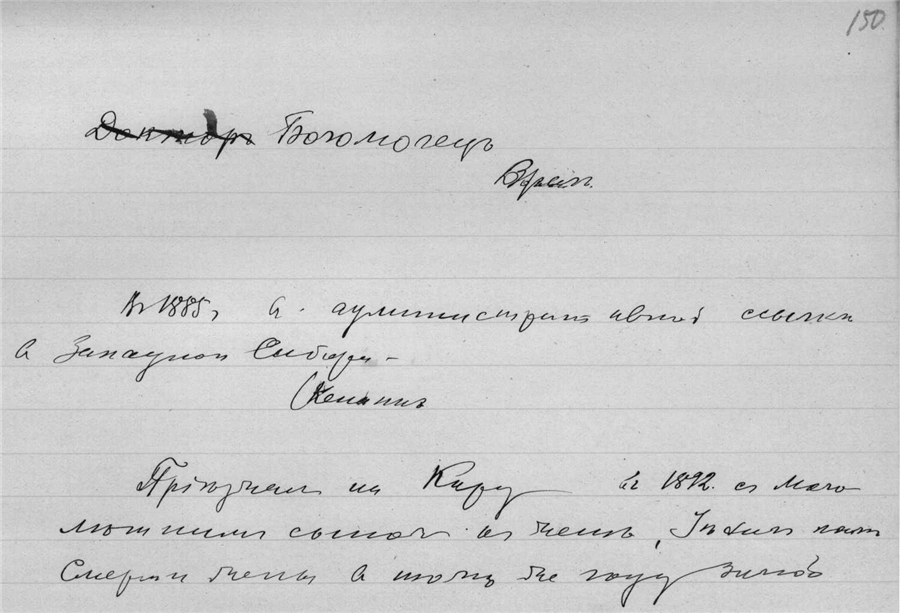 150
Докторъ Богомолецъ
Врач.
Въ 1885 г в административной ссылке
в Западной Сибири –
(Кеннанъ
Пріезжал на Кару въ 1892. съ мало
летнимъ сыномъ къ жене,
Смерти жены в томъ же году зимой